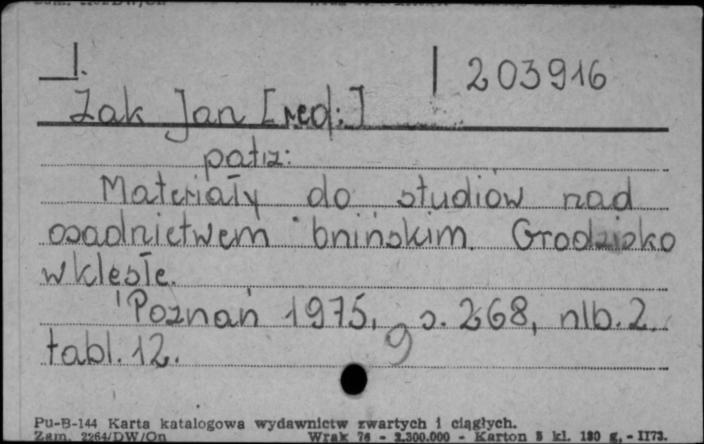 I. 203916
Żak Jan [red.:]
patrz:
Materiały do studiów nad
osadnictwem bnińskim. Grodzisko
wklęsłe.
Poznań 1975, s. 268, nlb. 2.
tabl. 12. 9
Pu-B-144 Karta katalogowa wydawnictw zwartych i ciągłych.
Zam. 2264/DW/On Wrak 76 - 2.300.000 - Karton B kl. 180 g. - II73.